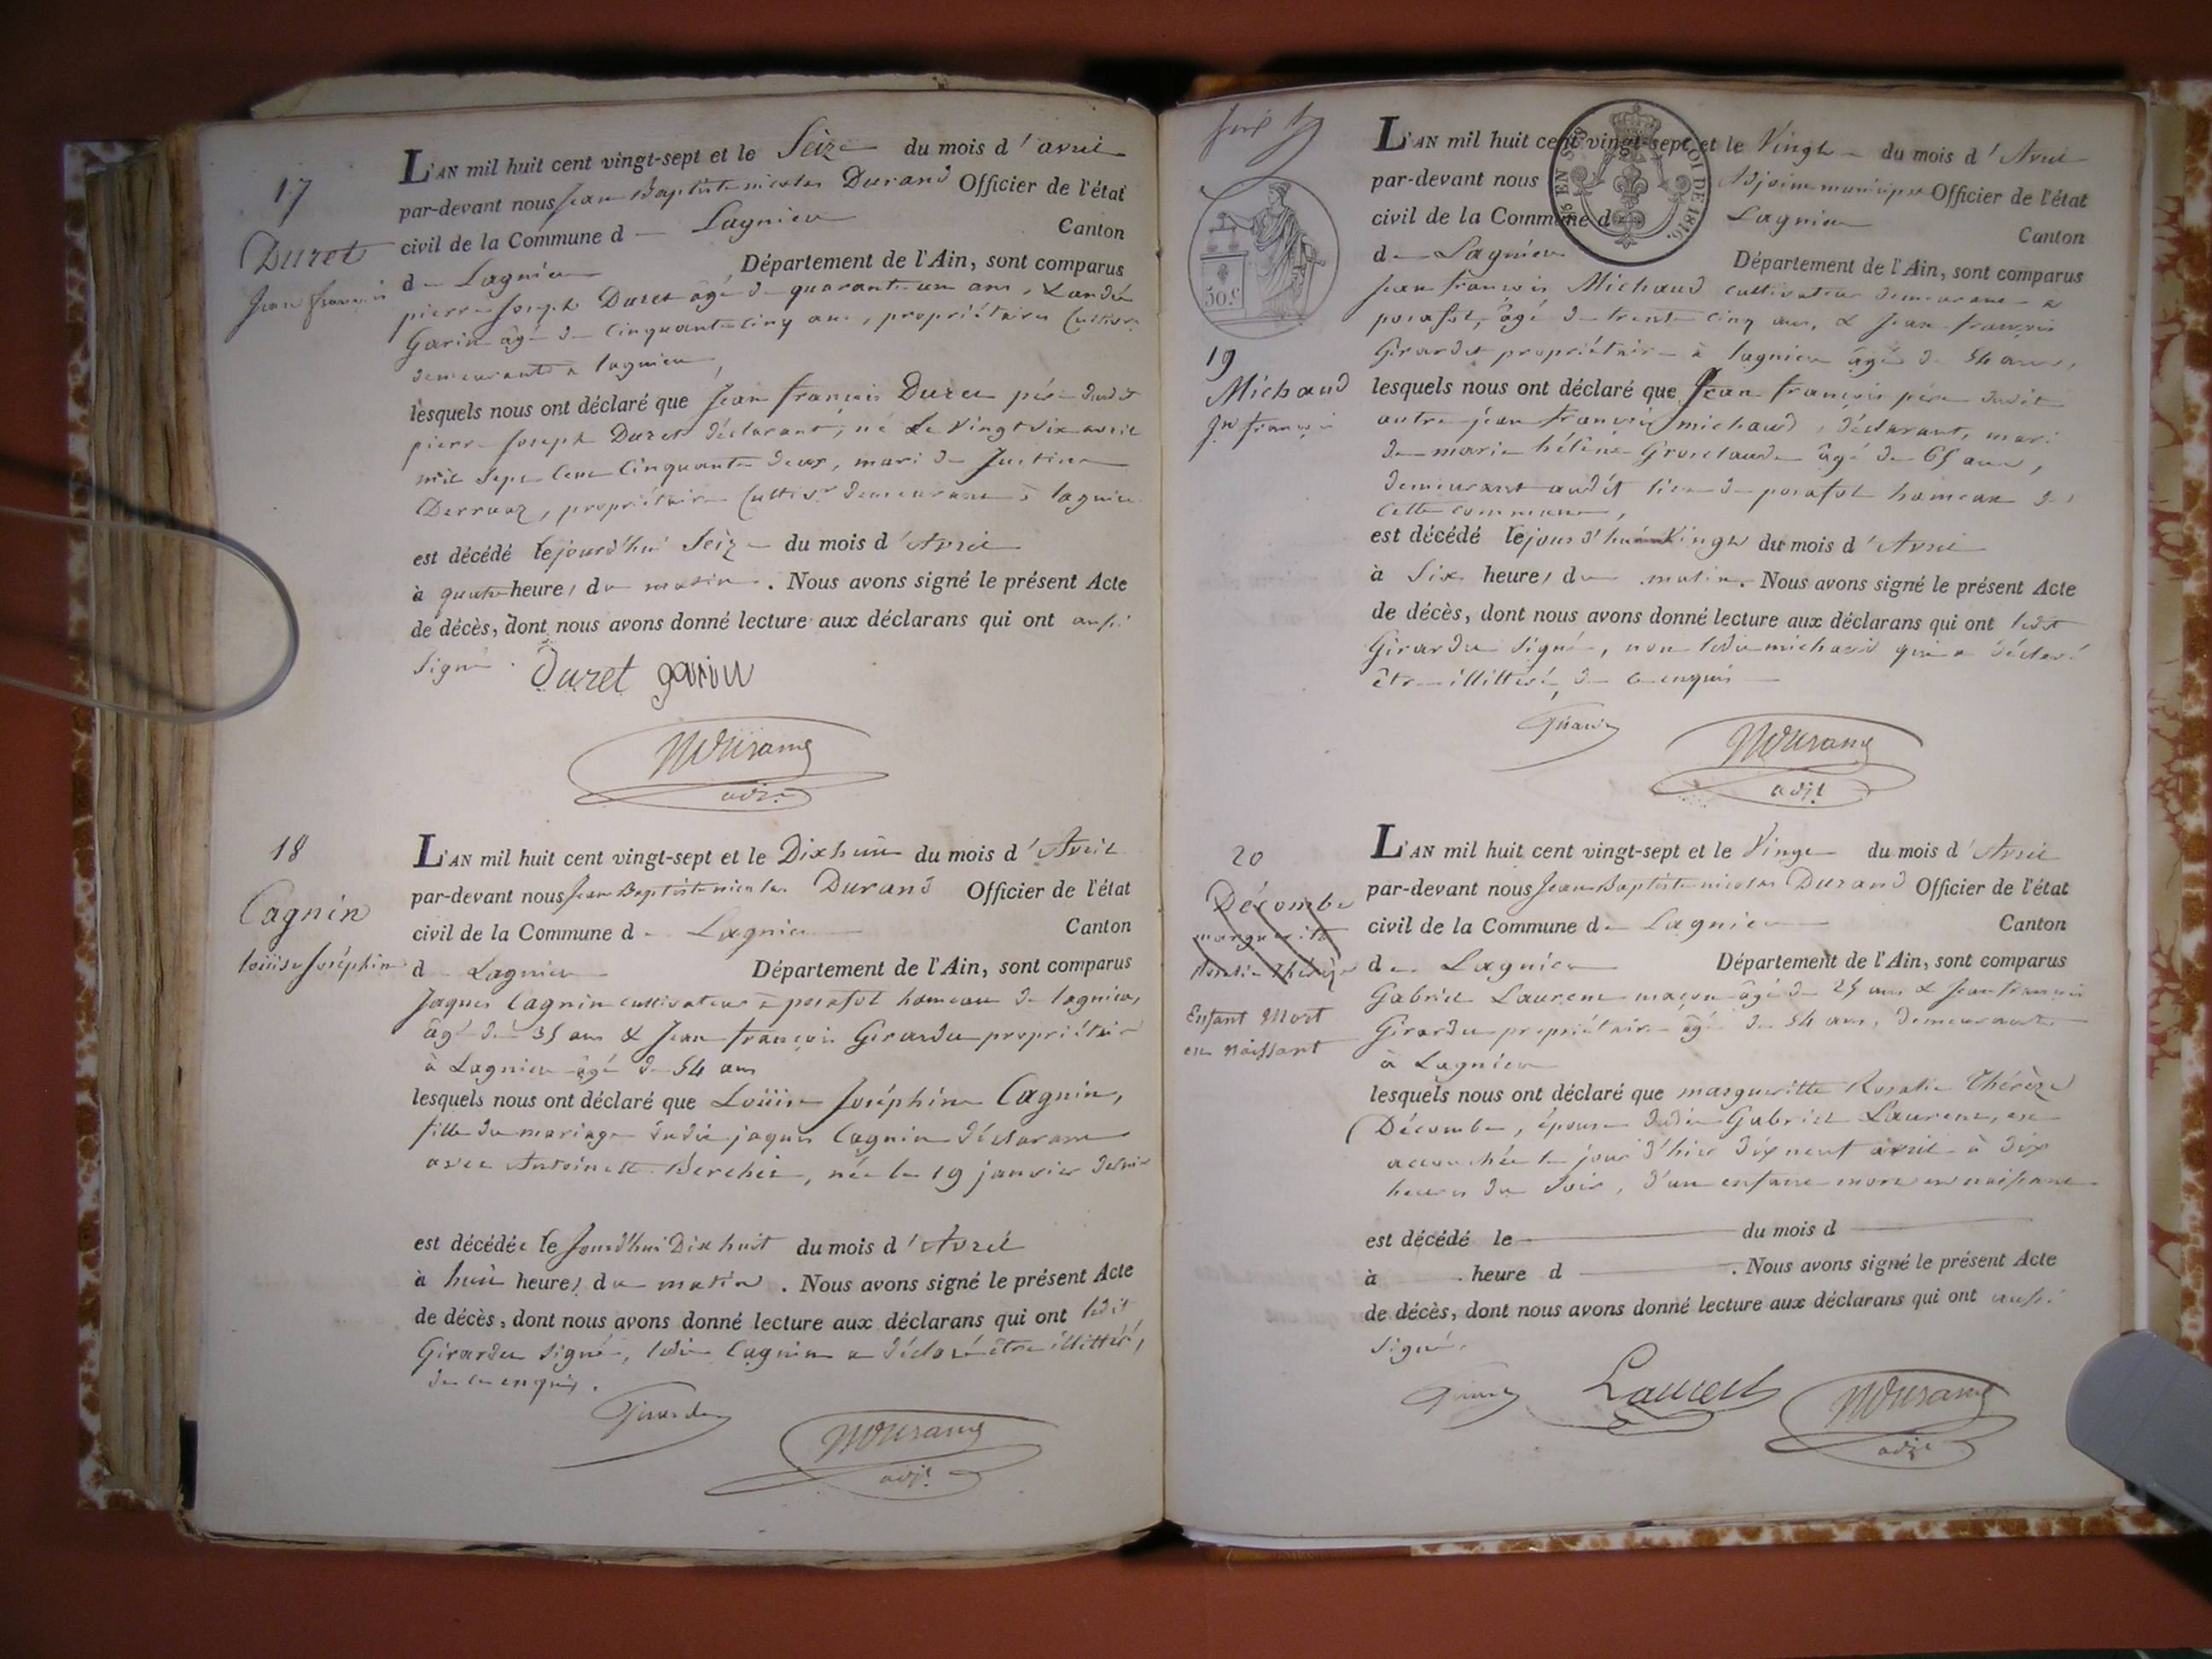 17
Duret
Jean françois
L'AN mil huit cent vingt-sept et le Seize du mois d'avril
par-devant nous Jean Baptiste nicolas Durand Officier de l'état
civil de la Commune d Lagnieu Canton
de Lagnieu Département de l'Ain, sont comparus
pierre Joseph Duret âgé de quarante un ans, & andré
Garin âgé de Cinquante cinq ans, propriétaires Cultivrs
demeurants a lagnieu,
lesquels nous ont déclaré que Jean françois Duret père dudit
pierre Joseph Duret déclarant, né Le Vingt six avril
mil Sept Cent Cinquante deux, mari de Justine
Derruaz, propriétaire Cultivr demeurant à lagnieu
est décédé lejourd'hui Seize du mois d'Avril
à quatre heures du matin. Nous avons signé le présent Acte
de décès, dont nous avons donné lecture aux déclarans qui ont aussi
Signé.
Duret garin
NDurand
adjt
18
Cagnin
loüise Joséphine
L'AN mil huit cent vingt-sept et le Dixhuit du mois d'Avril
par-devant nous Jean Baptiste nicolas Durand Officier de l'état
civil de la Commune de Lagnieu Canton
de Lagnieu Département de l'Ain, sont comparus
Jaques Cagnin cultivateur à posafol hameau de lagnieu,
âgé de 35 ans & Jean françois Girardet propriétaire
à Lagnieu âgé de 54 ans
lesquels nous ont déclaré que Loüise Joséphine Cagnin,
fille du mariage dudit jaques Cagnin déclarant
avec Antoinette Berchet, née le 19 janvier dernier
est décédée le Jourd'hui Dix huit du mois d'Avril
à huit heures du matin. Nous avons signé le présent Acte
de décès, dont nous avons donné lecture aux déclarans qui ont ledit
Girardet Signé, ledit Cagnin a déclaré être illittéré,
de ce enquis.
Girardet
NDurand
adjt
50.c
19
Michaud
Jn françois
L'AN mil huit cent vingt-sept et le Vingt du mois d'Avril
par-devant nous Adjoint municipal Officier de l'état
civil de la Commune de Lagnieu Canton
de Lagnieu Département de l'Ain, sont comparus
Jean françois Michaud cultivateur demeurant a
posafol, âgé de trente cinq ans, & Jean françois
Girardet propriétaire à lagnieu âgé de 54 ans,
lesquels nous ont déclaré que Jean françois père dudit
autre jean françois michaud, déclarant, mari
de marie hélène Grosclaude âgé de 65 ans,
demeurant audit lieu de posafol hameau de
cette commune,
est décédé lejourd'hui Vingt du mois d'Avril
à Six heures du matin. Nous avons signé le présent Acte
de décès, dont nous avons donné lecture aux déclarans qui ont ledit
Girardet Signé, non ledit michaud qui a déclaré
être illittéré, de ce enquis
Girardet
NDurand
adjt
20
Décombe
marguerite
Rosalie Thérèze
Enfant Mort
en Naissant
L'AN mil huit cent vingt-sept et le Vingt du mois d'Avril
par-devant nous Jean Baptiste nicolas Durand Officier de l'état
civil de la Commune de Lagnieu Canton
de Lagnieu Département de l'Ain, sont comparus
Gabriel Laurent maçon âgé de 25 ans & Jean françois
Girardet propriétaire âgé de 54 ans, demeurants
à Lagnieu
lesquels nous ont déclaré que margueritte Rosalie Thérèze
Décombe, épouse dudit Gabriel Laurent, est
accouchée le jour d'hier dix neuf avril à dix
heures du Soir, d'un enfant mort en naissant
est décédé le du mois d
à heure d. Nous avons signé le présent Acte
de décès, dont nous avons donné lecture aux déclarans qui ont aussi
Signé.
Girardet Laurent NDurand
adjt